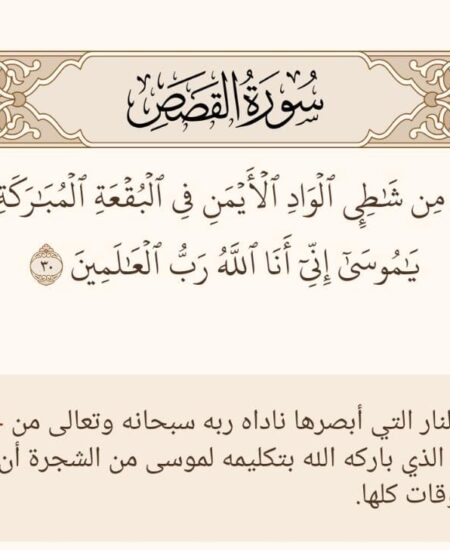 سُورَةُ القَصَصِ
مِن شَٰطِيِٕ ٱلۡوَادِ ٱلۡأَيۡمَنِ فِي ٱلۡبُقۡعَةِ ٱلۡمُبَٰرَكَةِ
يَٰمُوسَىٰٓ إِنِّيٓ أَنَا ٱللَّهُ رَبُّ ٱلۡعَٰلَمِينَ ٣٠
لنار التي أبصرها ناداه ربه سبحانه وتعالى من
الذي باركه الله بتكليمه لموسى من الشجرة أن
وقات كلها.